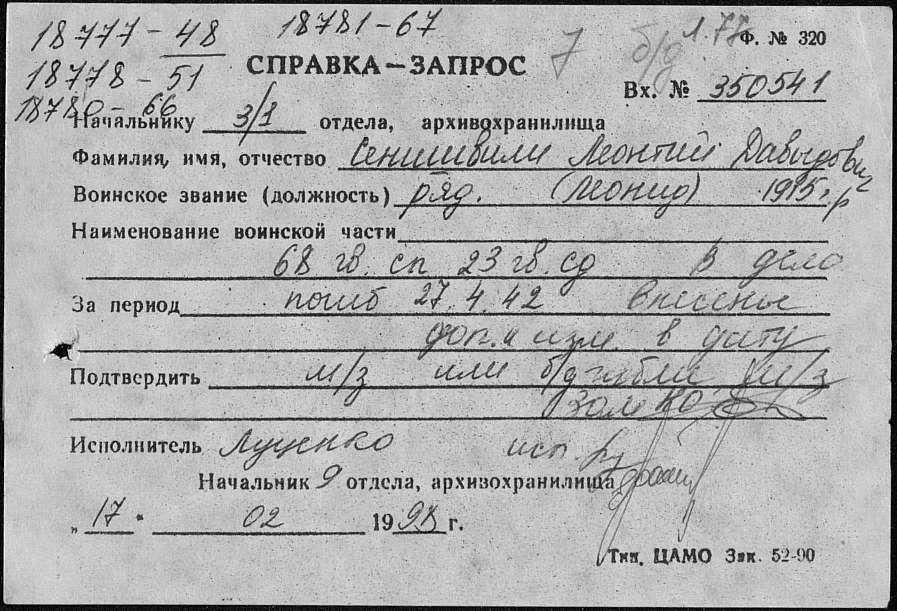 18777 - 48 18781 - 67 7 б/д 1.77 Ф. № 320
18778 - 51 СПРАВКА – ЗАПРОС
18780 - 66 Вх. № 350541
Начальнику 3/1 отдела, архивохранилища
Фамилия, имя, отчество Сенишвили Леонтий Давыдович
Воинское звание (должность) ряд. (Леонид) 1915 г.р
Наименование воинской части
68 гв. сп 23 гв. сд В дело
За период погиб 27.4.42 внесены
доп. и изм. в дату
Подтвердить м/з или б/д гибели м/з
Исполнитель Луценко исп.
Начальник 9 отдела, архивохранилища
„17“ 02 199 г.
Тип. ЦАМО Зак. 52-90